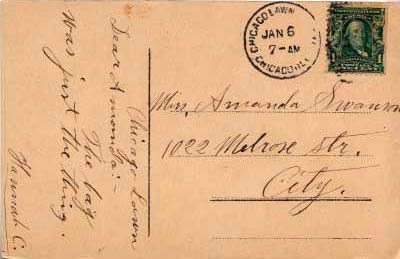 CHICAGO LAWN
JAN 6
7-AM
CHICAGO, ILL.
1
Chicago Lawn
Dear Amanda:-
The bag
was just the thing.
Hannah C.
Miss Amanda Swanson
1022 Melrose Str.
City.